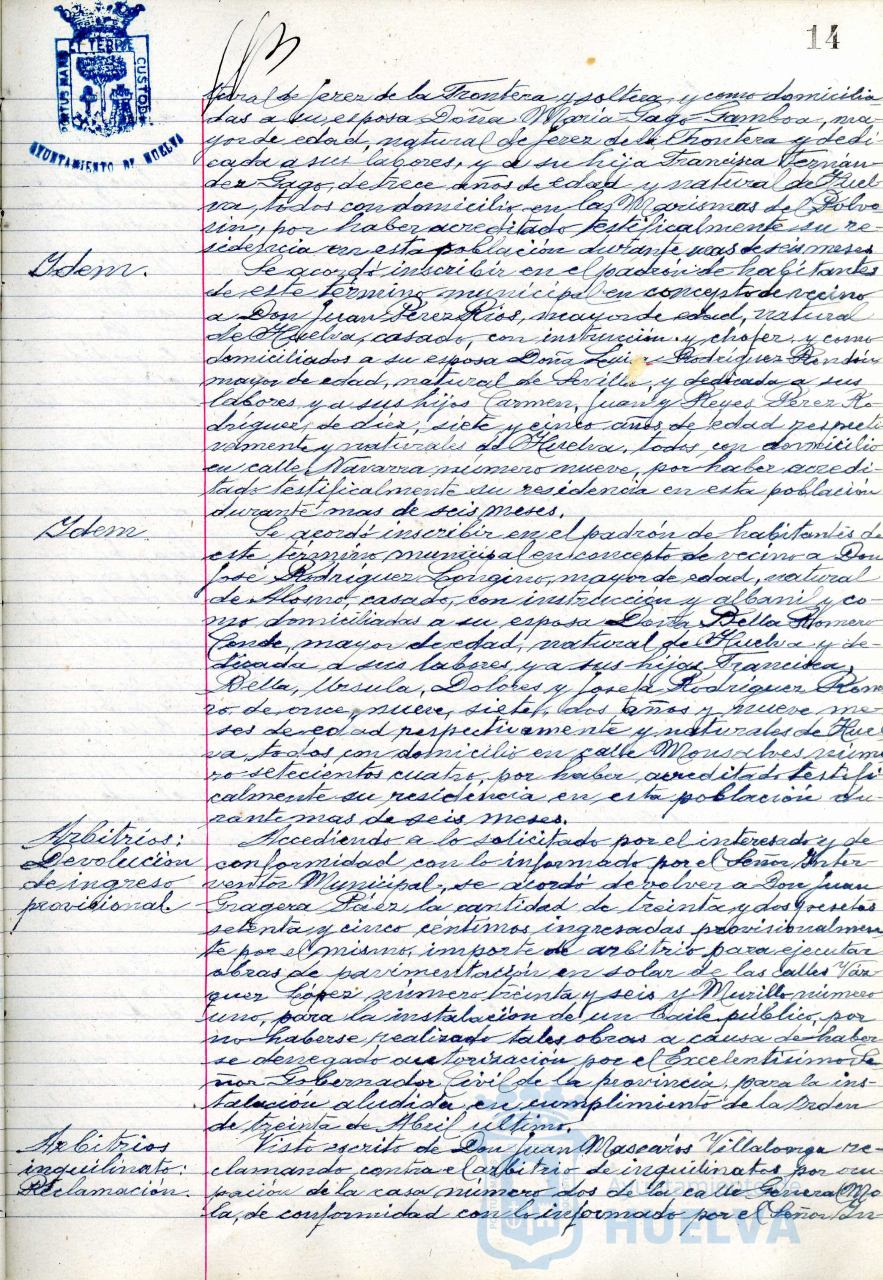 14
PORTUS MARIS ET TERRE CUSTODI
AYUNTAMIENTO DE HUELVA
tural de Jerez de la Frontera y soltera, y como domicilia-
das a su esposa Doña María Gago Gamboa, ma-
yor de edad, natural de Jerez de la Frontera y dedi-
cada a sus labores, y a su hija Francisca Fernán-
dez Gago, de trece años de edad y natural de Huel-
va, todos con domicilio en las Marismas del Polvo-
rin, por haber acreditado testificalmente su re-
sidencia en esta población durante mas de seis meses.
Idem.
Se acordó inscribir en el padrón de habitantes
de este término municipal en concepto de vecino
a Don Juan Pérez Ríos, mayor de edad, natural
de Huelva, casado, con instrucción y chofer, y como
domiciliados a su esposa Doña Luisa Rodríguez Rendón
mayor de edad, natural de Sevilla, y dedicada a sus
labores, y a sus hijos Carmen, Juan y Reyes Pérez Ro-
dríguez, de diez, siete y cinco años de edad respecti-
vamente y naturales de Huelva, todos con domicilio
en calle Navarra número nueve, por haber acredi-
tado testificalmente su residencia en esta población
durante mas de seis meses.
Idem
Se acordó inscribir en el padrón de habitantes de
este término municipal en concepto de vecino a Don
José Rodríguez Longino, mayor de edad, natural
de Alosno, casado, con instrucción y albañil y co-
mo domiciliadas a su esposa Doña Bella Romero
Conde, mayor de edad, natural de Huelva y de-
dicada a sus labores, y a sus hijas Francisca,
Bella, Ursula, Dolores y Josefa Rodríguez Rome-
ro de once, nueve, siete, dos años y nueve me-
ses de edad respectivamente y naturales de Huel-
va, todos con domicilio en calle Monsalves núme-
ro setecientos cuatro, por haber acreditado testifi-
calmente su residencia en esta población du-
rante mas de seis meses.
Arbitrios:
Devolución
de ingreso
provisional.
Accediendo a lo solicitado por el interesado y de
conformidad con lo informado por el Señor Inter-
ventor Municipal, se acordó devolver a Don Juan
Gragera Páez, la cantidad de treinta y dos pesetas
setenta y cinco céntimos ingresadas provisionalmen-
te por el mismo, importe de arbitrio para ejecutar
obras de pavimentación en solar de las calles Váz-
quez López, número treinta y seis y Murillo número
uno, para la instalación de un baile público, por
no haberse realizado tales obras a causa de haber-
se denegado autorización por el Excelentísimo Se-
ñor Gobernador Civil de la provincia, para la ins-
talación aludida, en cumplimiento de la Orden
de treinta de Abril último.
Arbitrios
inquilinato:
Reclamación.
Visto escrito de Don Juan Mascarós Villalonga re-
clamando contra el arbitrio de inquilinatos por ocu-
pación de la casa número dos de la calle General Mo-
la, de conformidad con lo informado por el Señor In-
Ayuntamiento de
HUELVA